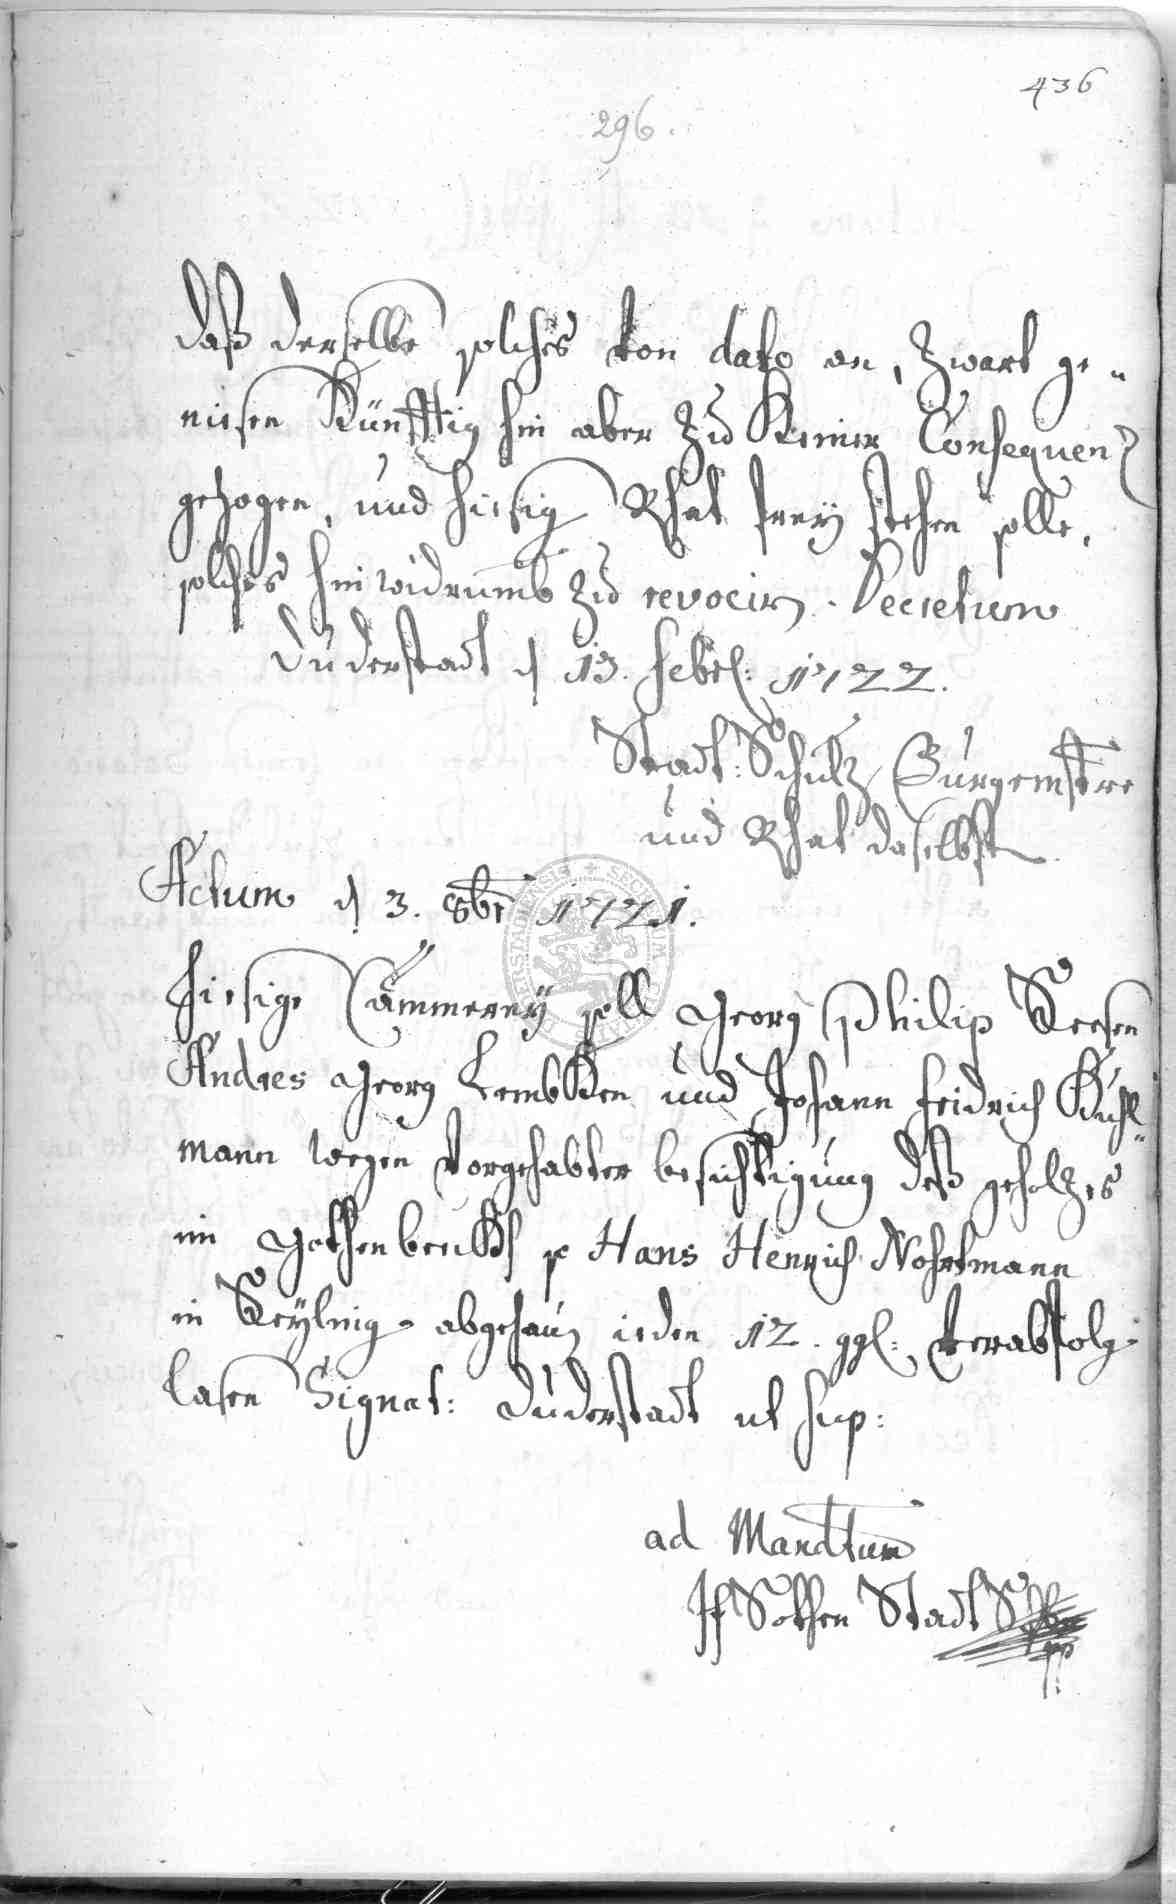 436
296.
daß derselbe solches von dato an, zwart ge-
niesen Künfftig hin aber zu Keiner Consequenz
gezogen, und hiesig Rhat freÿ stehen solle,
solches hinwidrumb zu revocirn. Decretum
Duderstadt d 13. Febr: 1722.
Stadt: Schultz, Bürgemstere
und Rhat daselbst
Actum d 3. 8br 1721.
Hiesige Cämmereÿ soll Georg Philip Kresen
Andres Georg LembKen und Johann Fridrich Kuhl-
mann wegen vorgehabter besichtigung deß geholzes
im p Hans Henrich Nohrtmann
in abgehaun ieden 12. ggl: verabfolg
lasen Signat: Duderstadt ut sup:
ad Mandtum
Sothen Stadt